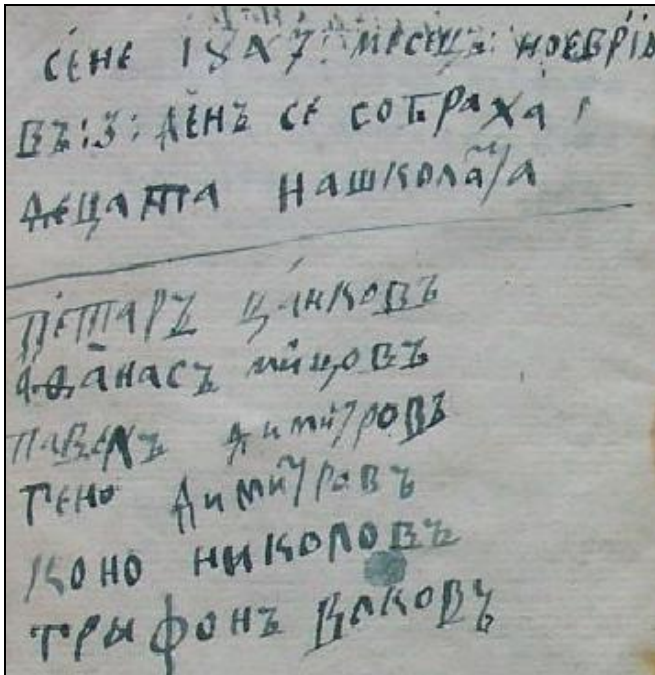 се́не 1847: месецъ: ноеврїа
въ:з: де́нъ се́ собраха
децата нашкола́та
Пе́таръ Ца́нковъ
Аѳа́насъ ми́цовъ
павелъ димитровъ
гено дими́тровъ
коно николовъ
трыфонъ Вълковъ